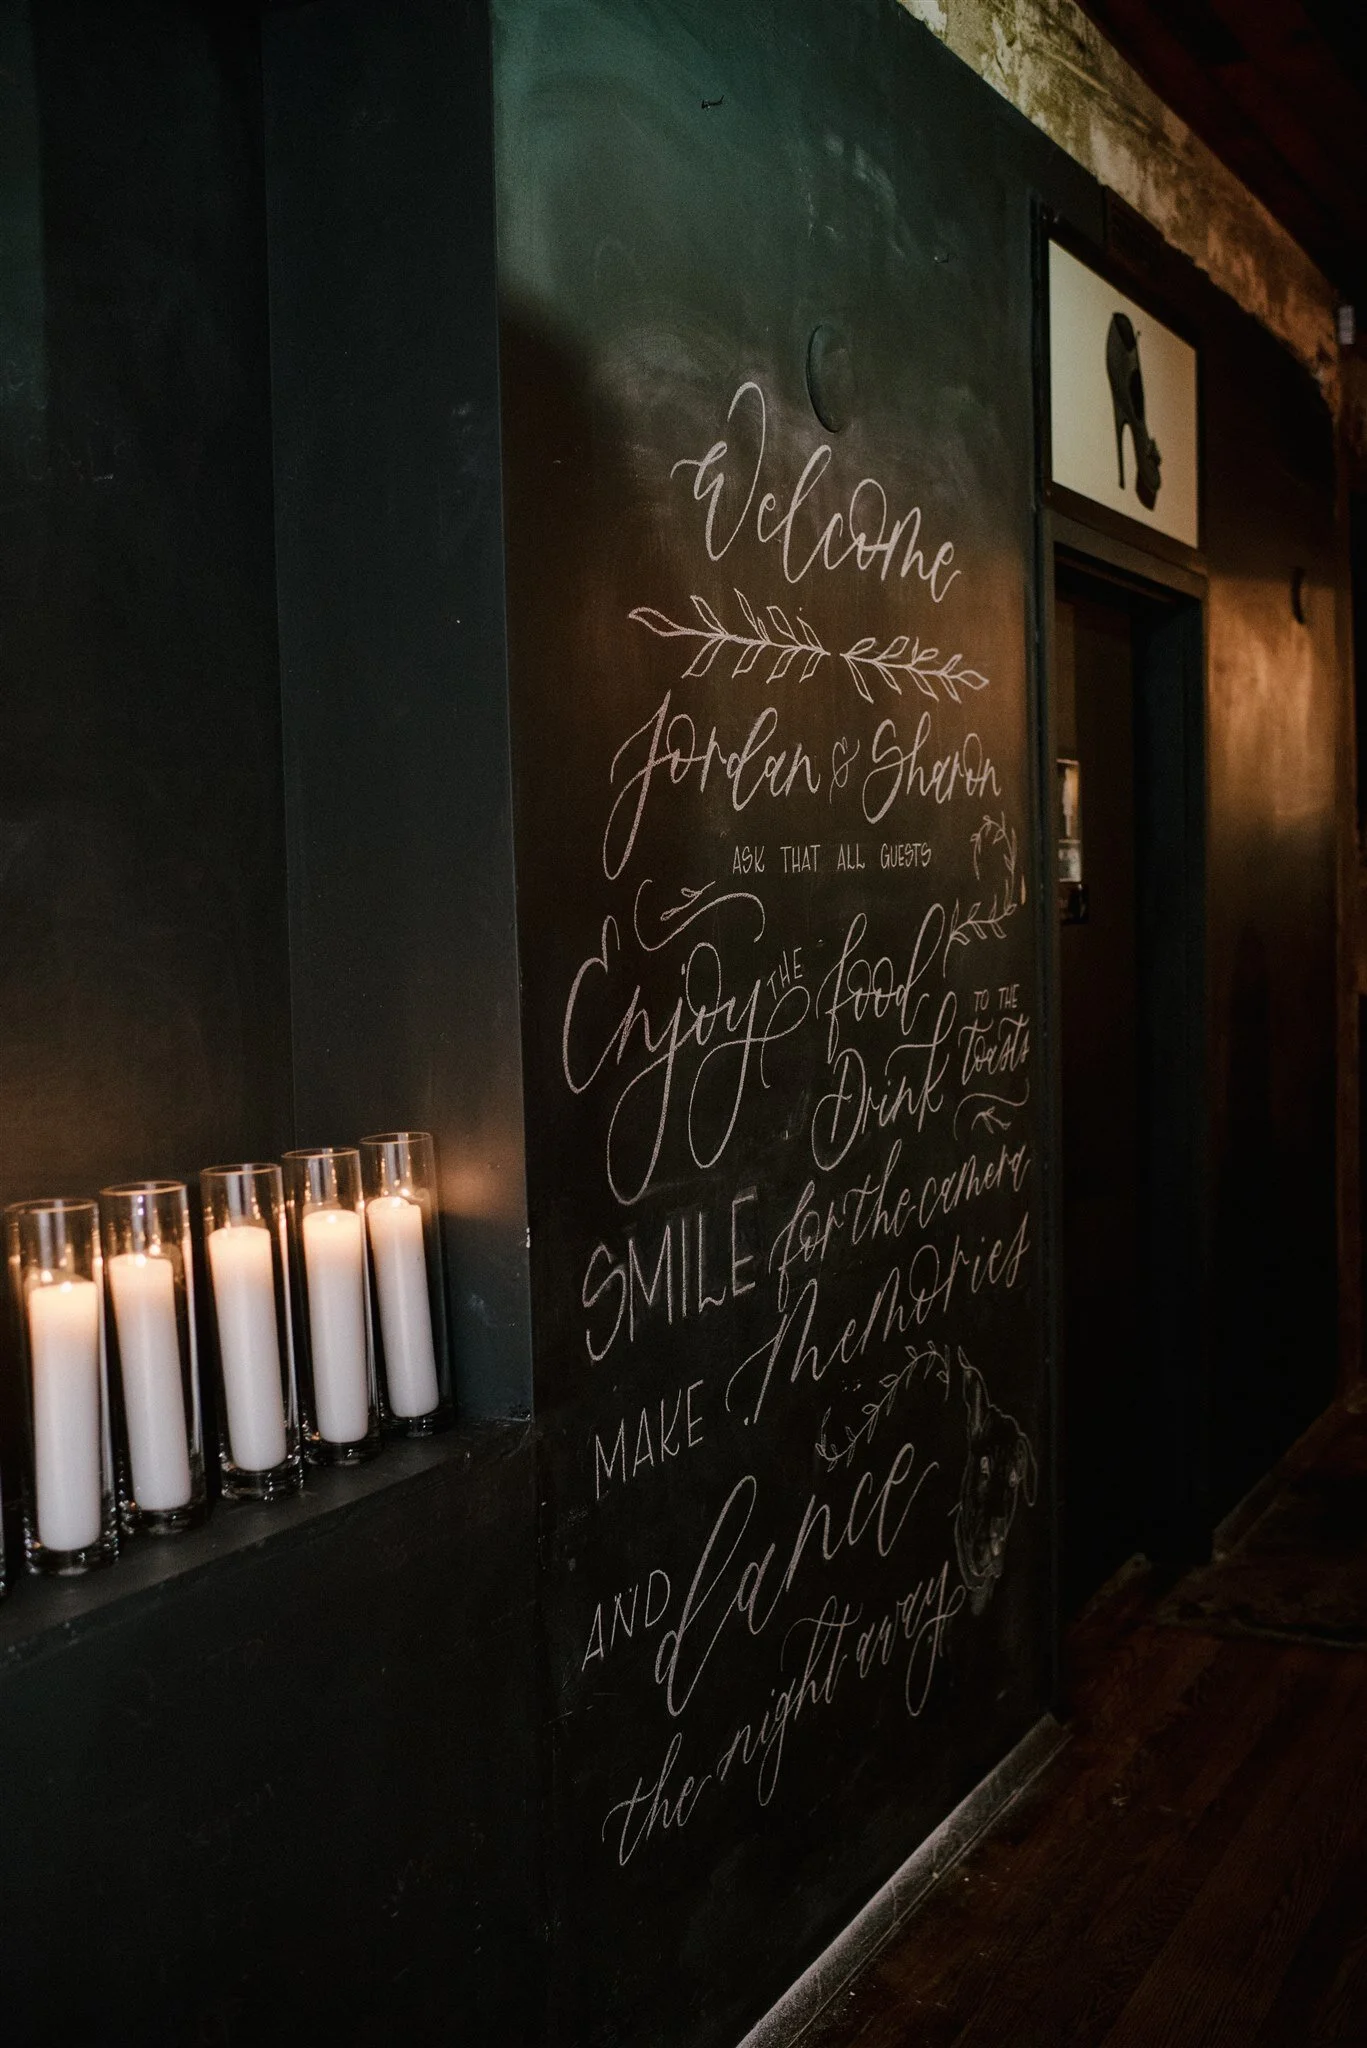 Welcome
Jordan & Sharon
ASK THAT ALL GUESTS
Enjoy THE food
Drink TO THE toasts
SMILE for the camera
MAKE Memories
AND dance
the night away